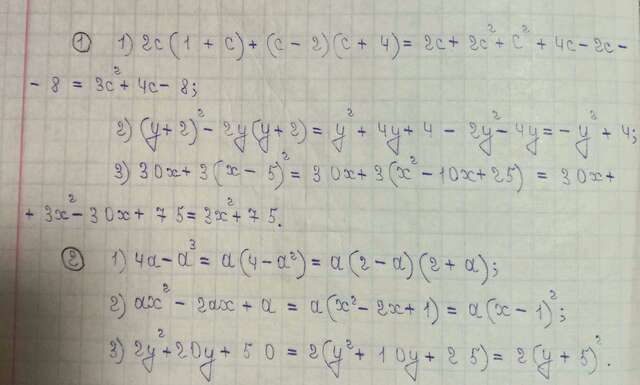 ① 1) 2c(1 + c) + (c - 2)(c + 4) = 2c + 2c² + c² + 4c - 2c -
- 8 = 3c² + 4c - 8;
2) (y + 2)² - 2y(y + 2) = y² + 4y + 4 - 2y² - 4y = -y² + 4;
3) 30x + 3(x - 5)² = 30x + 3(x² - 10x + 25) = 30x +
+ 3x² - 30x + 75 = 3x² + 75.
② 1) 4a - a³ = a(4 - a²) = a(2 - a)(2 + a);
2) ax² - 2ax + a = a(x² - 2x + 1) = a(x - 1)²;
3) 2y² + 20y + 50 = 2(y² + 10y + 25) = 2(y + 5)².